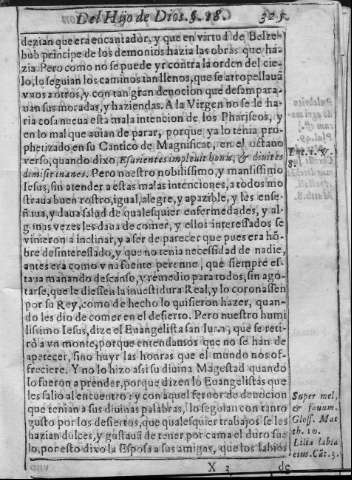 Del Hijo de Dios. §. 18. 325.
dezian que era encantador, y que en virtud de Belze-
bub principe de los demonios hazia las obras que ha-
zia. Pero como no se puede yr contra la orden del cie-
lo, lo seguian los caminos tan llenos, que se atropellauã
vnos a otros, y con tan gran deuocion que desampara-
uan sus moradas, y haziendas. A la Virgen no se le ha-
ria cosa nueua esta mala intencion de los Phariseos, y
en lo mal que auian de parar, porque ya lo tenia pro-
phetizado en su Cantico de Magnificat, en el octauo
verso, quando dixo, Esurientes impleuit bonis, & diuites
dimisit inanes. Pero nuestro nobilissimo, y mansissimo
Iesus, sin atender a estas malas intenciones, a todos mo
straua buen rostro, igual, alegre, y apazible, y les ense-
ñaua, y daua salud de qualesquier enfermedades, y al-
gunas vezes les daua de comer, y ellos interessados se
vinieron a inclinar, y a ser de parecer que pues era hõ-
bre desinteressado, y que no tenia necessidad de nadie,
antes era como vna fuente perenne, que siempre es-
taua manando descanso, y remedio para todos, sin ago-
tarse, que le diessen la inuestidura Real, y lo coronassen
por su Rey, como de hecho lo quisieron hazer, quan-
do les dio de comer en el desierto. Pero nuestro humi
lissimo Iesus, dize el Euangelista san Iuan, que se reti-
rò a vn monte, porque entendamos que no se hàn de
apetecer, sino huyr las honras que el mundo nos of-
freciere. Y no lo hizo assi su diuina Magestad quando
lo fueron a prender, porque dizen lo Euangelistas que
les salio al encuentro: y con aquel feruor de deuocion
que tenian a sus diuinas palabras, lo seguian con tanto
gusto por los desiertos, que qualesquier trabajos se les
hazian dulces, y gustaua de tener por cama el duro sue
lo, por esto diuo la Esposa a sus amigas, que los labios
X 3 de
8.
Super mel,
& fauum.
Gloss. Mat
th. 10.
Lilia labia
eius. Cãt. 5.